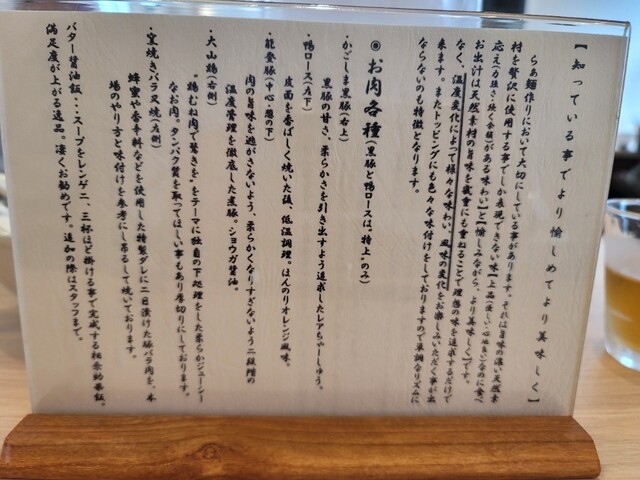 【知っている事でより愉しめてより美味しく】
らぁ麺作りにおいて大切にしている事があります。それは旨味の濃い天然素
材を贅沢に使用する事でしか表現できない味【上品(優しい・心地良い)なのに食べ
応え(力強さ・狭く余韻)がある味わい】と【愉しみながら、より美味しく】です。
お出汁は天然素材の旨味を幾重にも重ねることで理想の味を追求するだけで
なく、温度変化によって様々な味わい、風味の変化をお楽しみいただく事が出
来ます。またトッピングにも色々な味付けをしておりますので単調なリズムに
ならないのも特徴となります。
◎お肉各種(黒豚と鴨ロースは"特上"のみ)
・かごしま黒豚(右上)
黒豚の甘さ、柔らかさを引き出すよう追求したレアちゃーしゅう。
・鴨ロース(左下)
皮面を香ばしく焼いた後、低温調理。ほんのりオレンジ風味。
・能登豚(中心・麺の下)
肉の旨味を逃がさないよう、柔らかくなりすぎないよう二段階の
温度管理を徹底した煮豚。ショウガ醤油。
・大山鶏(右側)
"鶏むね肉で驚きを"をテーマに独自の下処理をした柔らかジューシー
なお肉。タンパク質を取ってほしい事もあり厚切りにしております。
・窯焼きバラ叉焼(左側)
蜂蜜や香辛料などを使用した特製ダレに二日漬けた豚バラ肉を、本
場のやり方と味付けを参考にし吊るして焼いております。
バター醤油飯・・スープをレンゲ二、三杯ほど掛ける事で完成する相乗効果飯。
満足度が上がる逸品。凄くお勧めです。追加の際はスタッフまで。